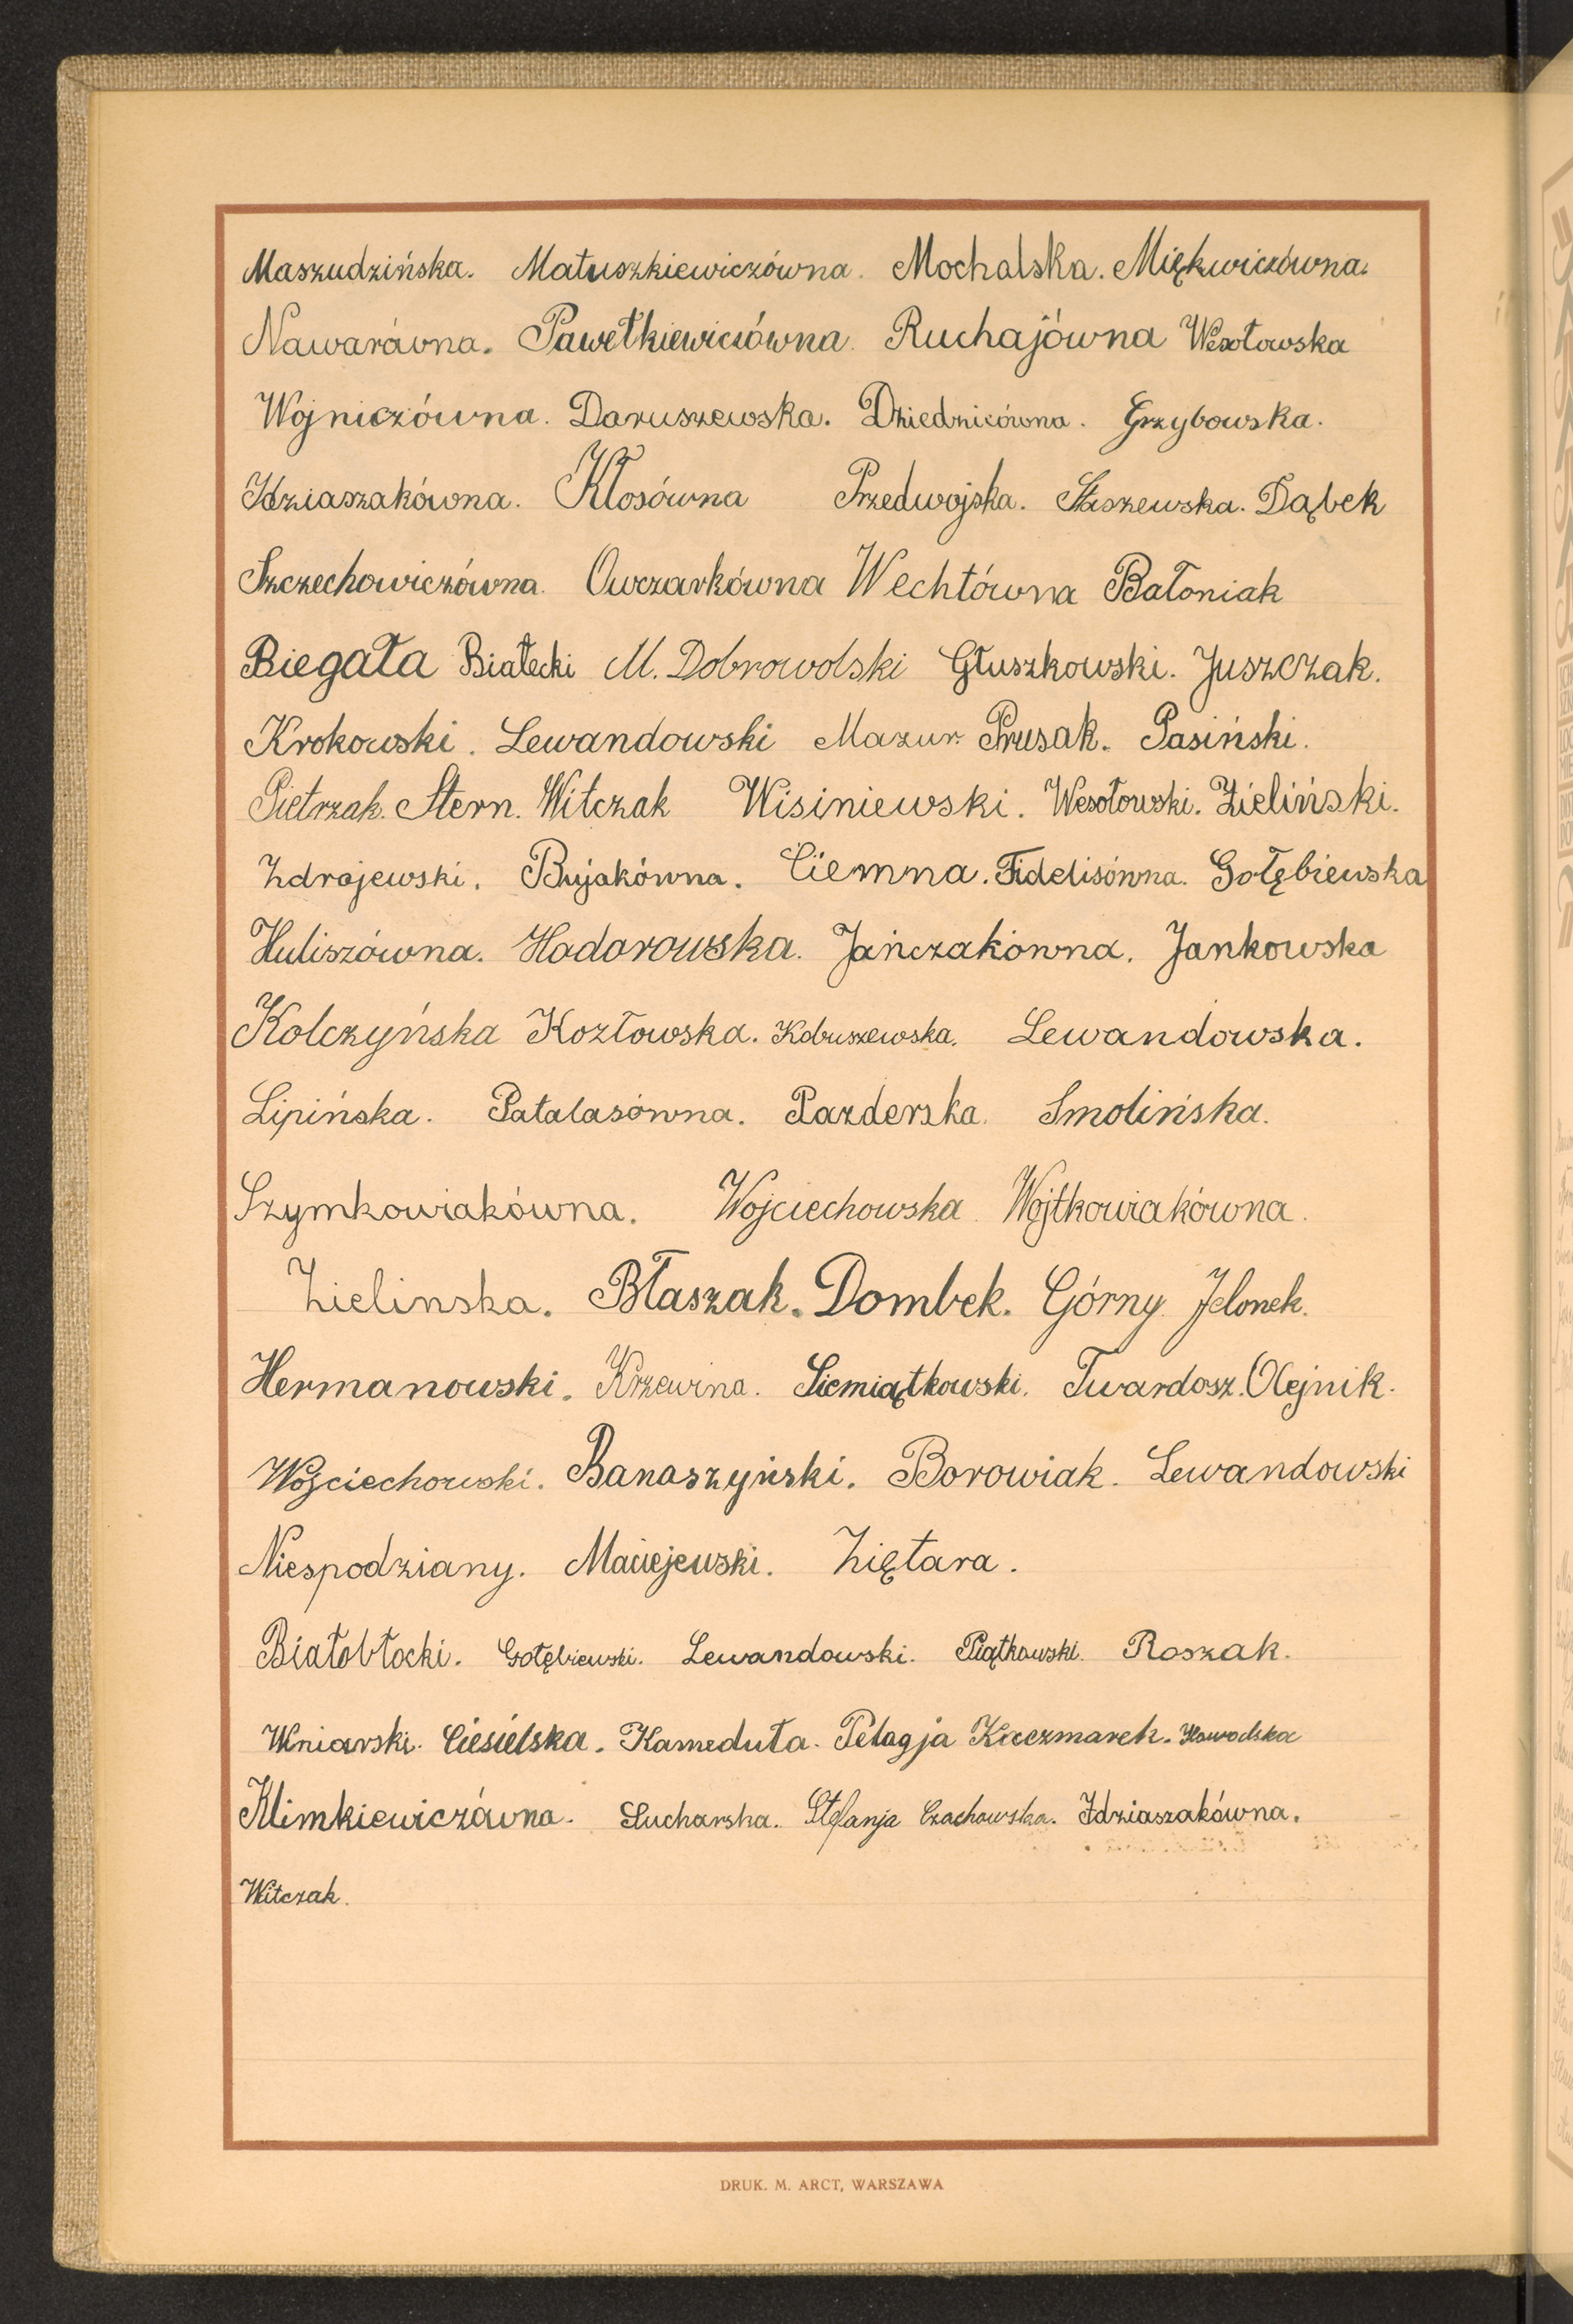 Maszudzińska. Matuszkiewiczówna. Mochalska. Miękwiczówna.
Nawarówna. Pawełkiewiczówna. Ruchajówna Wesołowska
Wojniczówna. Daruszewska. Dziedzicówna. Grzybowska.
Idziaszakówna. Kłosówna Przedwojska. Staszewska. Dąbek
Szczechowiczówna. Owczarkówna Wechtówna Batoniak
Biegała Białecki M. Dobrowolski Głuszkowski. Juszczak.
Krokowski. Lewandowski Mazur. Prusak. Pasiński.
Pietrzak. Stern. Witczak Wisiniewski. Wesołowski. Zieliński.
Zdrojewski. Bujakówna. Ciemna. Fidelisówna. Gołębiewska
Huliszówna. Hadarowska. Jańczakówna. Jankowska
Kolczyńska Kozłowska. Kobuszewska. Lewandowska.
Lipińska. Patalasówna. Pazderska. Smolińska.
Szymkowiakówna. Wojciechowska Wojtkowiakówna.
Zielinska. Błaszak. Dombek. Górny. Jelonek.
Hermanowski. Krzewina. Siemiątkowski. Twardosz. Olejnik.
Wojciechowski. Banaszyński. Borowiak. Lewandowski
Niespodziany. Maciejewski. Ziętara.
Białobłocki. Gołębiewski. Lewandowski. Piątkowski. Roszak.
Winiarski. Ciesielska. Kameduła. Pelagja Kaczmarek.
Klimkiewiczówna. Sucharska. Stefanja Czachowska. Idziaszakówna.
Witczak.
DRUK. M. ARCT, WARSZAWA